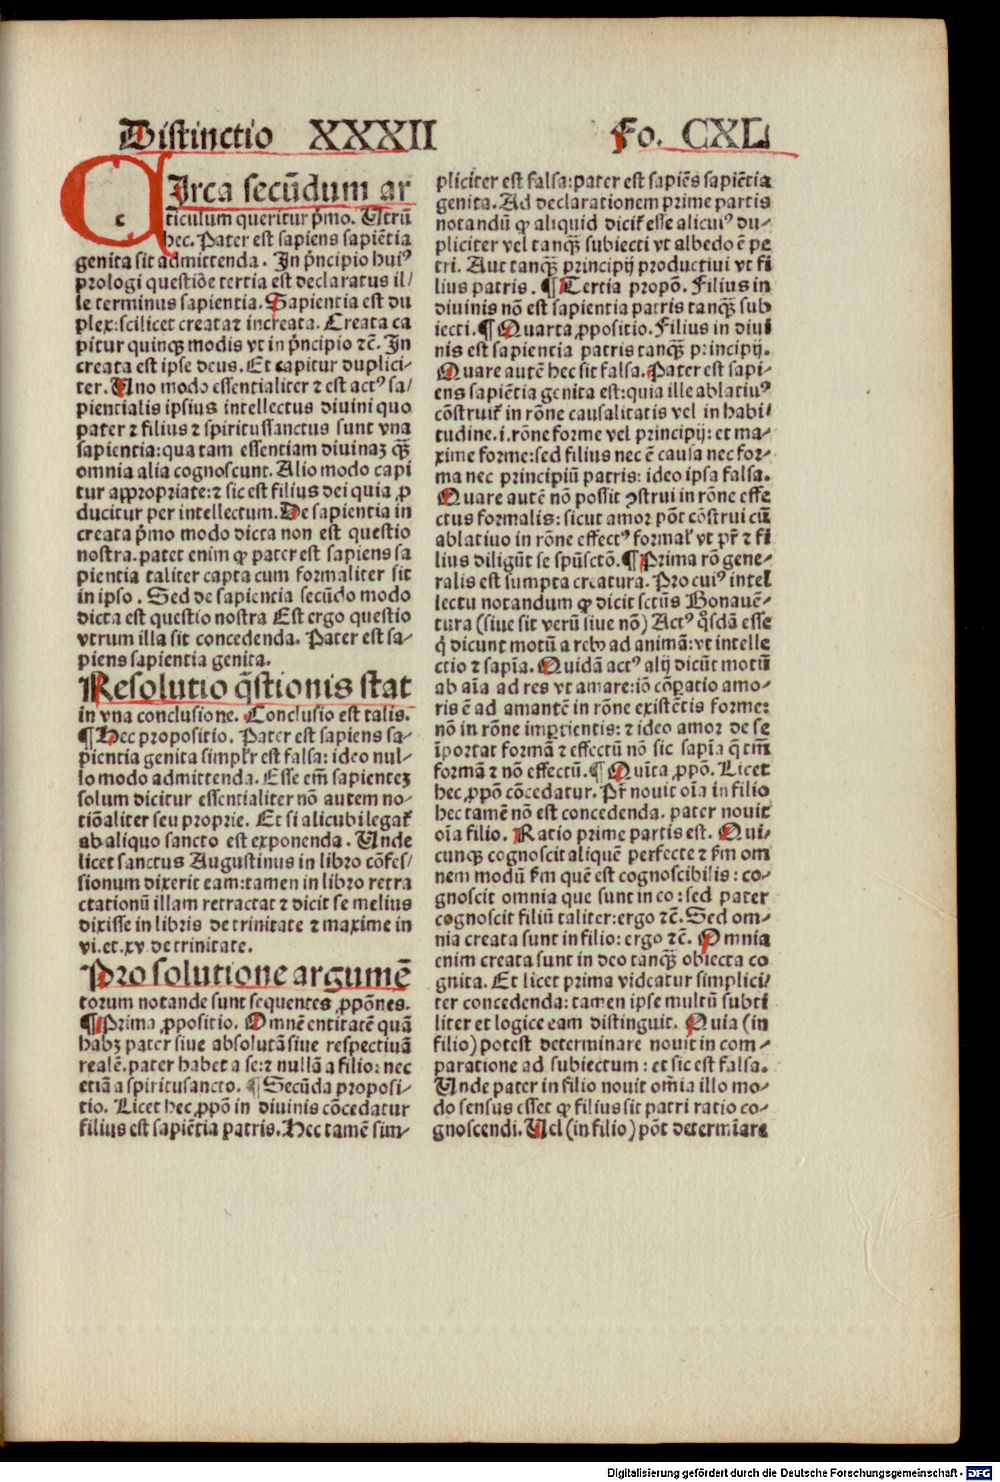 Distinctio XXXII Fo. CXL
CIrca secūdum ar
ticulum queritur p̄mo. Utrū
hec. Pater est sapiens sapiētia
genita sit admittenda. In p̄ncipio huiꝰ
prologi questiōe tertia est declaratus il/
le terminus sapientia. Sapientia est du
plex: scilicet creata ⁊ increata. Creata ca
pitur quinqꝫ modis vt in p̄ncipio ⁊c̄. In
creata est ipse deus. Et capitur duplici-
ter. Uno modo essentialiter ⁊ est actꝰ sa/
pientialis ipsius intellectus diuini quo
pater ⁊ filius ⁊ spiritussanctus sunt vna
sapientia: qua tam essentiam diuinaꝫ qꝫ̄
omnia alia cognoscunt. Alio modo capi
tur appropriate: ⁊ sic est filius dei quia ꝓ
ducitur per intellectum. De sapientia in
creata p̄mo modo dicta non est questio
nostra. patet enim ꝙ pater est sapiens sa
pientia taliter capta cum formaliter sit
in ipso. Sed de sapientia secūdo modo
dicta est questio nostra Est ergo questio
vtrum illa sit concedenda. Pater est sa-
piens sapientia genita.
Resolutio q̄stionis stat
in vna conclusione. Conclusio est talis.
¶ Hec propositio. Pater est sapiens sa-
pientia genita simpl'r est falsa: ideo nul-
lo modo admittenda. Esse em̄ sapienteꝫ
solum dicitur essentialiter nō autem no-
tiōaliter seu proprie. Et si alicubi legat᷑
ab aliquo sancto est exponenda. Unde
licet sanctus Augustinus in libro cōfes/
sionum dixerit eam: tamen in libro retra
ctationū illam retractat ⁊ dicit se melius
dixisse in libris de trinitate ⁊ maxime in
vi. et. xv. de trinitate.
Pro solutione argumē
torum notande sunt sequentes ꝓpōnes.
¶ Prima ꝓpositio. Omnē entitatē quā
habꝫ pater siue absolutā siue respectiuā
realē. pater habet a se: ⁊ nullā a filio: nec
etiā a spiritusancto. ¶ Secūda proposi-
tio. Licet hec ꝓpō in diuinis cōcedatur
filius est sapiētia patris. Hec tamē sim-
pliciter est falsa: pater est sapiēs sapiētia
genita. Ad declarationem prime partis
notandū ꝙ aliquid dicit᷑ esse alicuiꝰ du-
pliciter vel tanqꝫ̄ subiecti vt albedo ē pe
tri. Aut tanqꝫ̄ principij productiui vt fi
lius patris. ¶ Tertia propō. Filius in
diuinis nō est sapientia patris tanqꝫ̄ sub
iecti. ¶ Quarta ꝓpositio. Filius in diui
nis est sapientia patris tanqꝫ̄ principij.
Quare autē hec sit falsa. Pater est sapi-
ens sapiētia genita est: quia ille ablatiuꝰ
cōstruit᷑ in rōne causalitatis vel in habi/
tudine. i. rōne forme vel principij: et ma-
xime forme: sed filius nec ē causa nec for-
ma nec principiū patris: ideo ipsa falsa.
Quare autē nō possit ꝯstrui in rōne effe
ctus formalis: sicut amor pōt cōstrui cū
ablatiuo in rōne effectꝰ formal' vt pr̄ ⁊ fi
lius diligūt se spūsctō. ¶ Prima rō gene-
ralis est sumpta creatura. Pro cuiꝰ intel
lectu notandum ꝙ dicit sctūs Bonauē-
tura (siue sit verū siue nō) Actꝰ q̄sdā esse
q̄ dicunt motū a rebꝰ ad animā: vt intelle
ctio ⁊ sapīa. Quidā actꝰ alij dicūt motū
ab aīa ad res vt amare: iō cōꝑatio amo-
ris ē ad amantē in rōne existētis forme:
nō in rōne imꝑtientis: ⁊ ideo amor de se
īportat formā ⁊ effectū nō sic sapīa q̄ tm̄
formā ⁊ nō effectū. ¶ Quīta ꝓpō. Licet
hec ꝓpō cōcedatur. Pr̄ nouit oīa in filio
hec tamē nō est concedenda. pater nouit
oīa filio. Ratio prime partis est. Qui-
cunqꝫ cognoscit aliquē perfecte ⁊ ẜm om
nem modū ẜm quē est cognoscibilis: co-
gnoscit omnia que sunt in eo: sed pater
cognoscit filiū taliter: ergo ⁊c̄. Sed om-
nia creata sunt in filio: ergo ⁊c̄. Omnia
enim creata sunt in deo tanqꝫ̄ obiecta co
gnita. Et licet prima videatur simplici/
ter concedenda: tamen ipse multū subti
liter et logice eam distinguit. Quia (in
filio) potest determinare nouit in com-
paratione ad subiectum: et sic est falsa.
Unde pater in filio nouit om̄ia illo mo-
do sensus esset ꝙ filius sit patri ratio co-
gnoscendi. Uel (in filio) pōt determīare
Digitalisierung gefördert durch die Deutsche Forschungsgemeinschaft - DFG